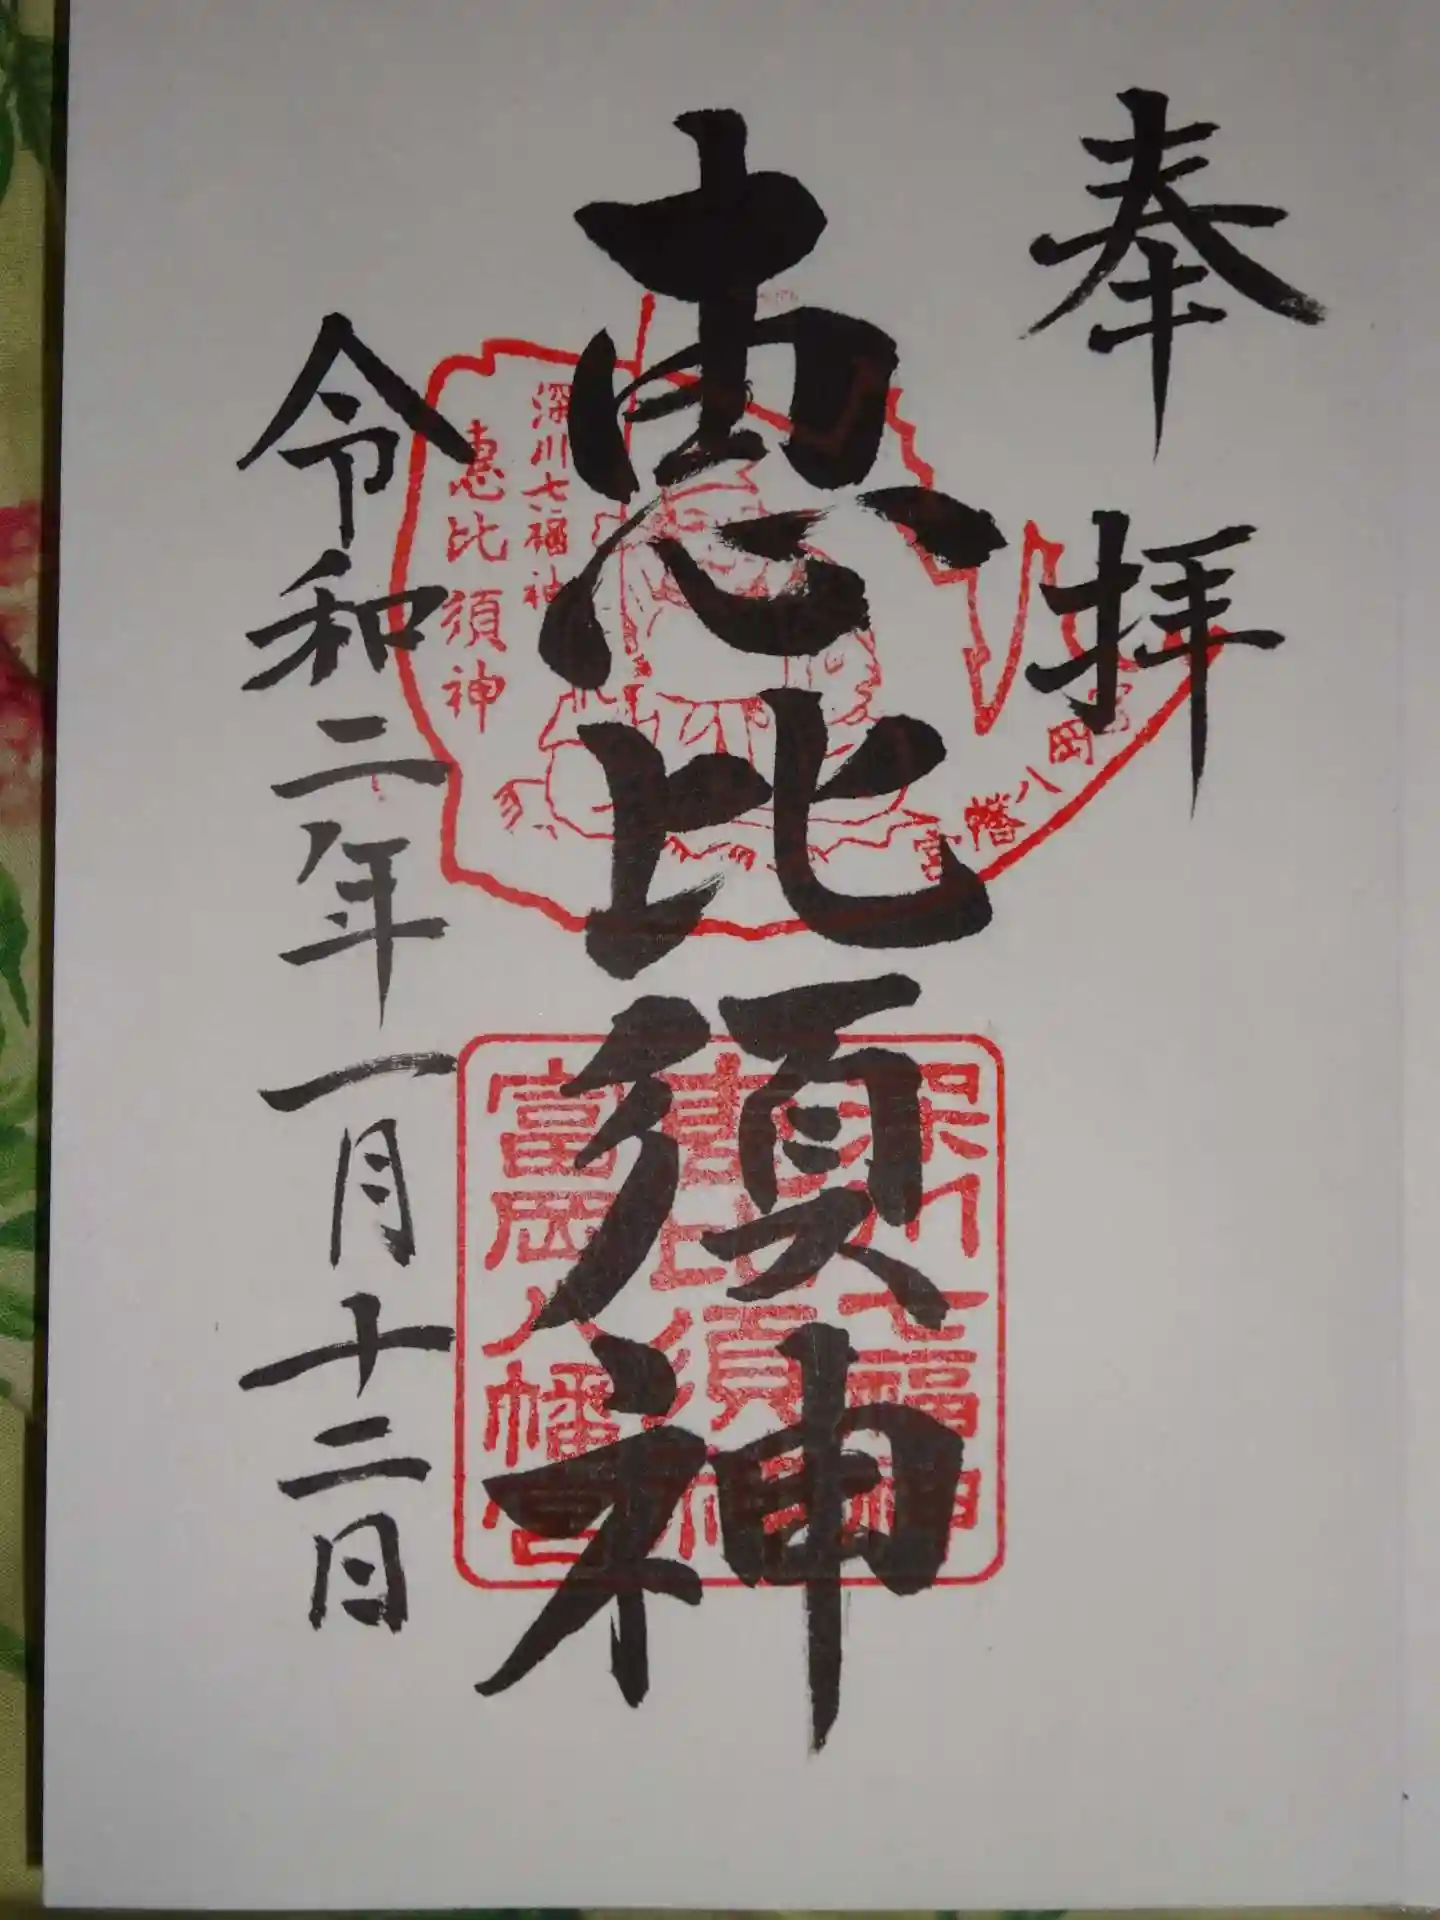 奉拝
恵比須神
令和二年一月十二日
深川七福神
恵比須神
富岡八幡宮
深川七福神
恵比須神
富岡八幡宮